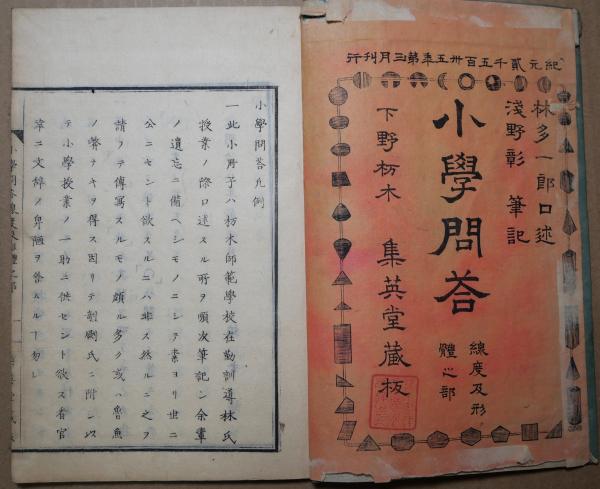 紀元貳千五百卅五年第三月刊行
林多一郎口述
淺野彰 筆記
小學問荅
線度及形
體之部
下野栃木 集英堂藏板
小學問荅凡例
一此小冊子ハ栃木師範學校在勤訓導林氏
授業ノ際口述スル所ヲ順次筆記シ余輩
ノ遺忘ニ備ヘシモノニシテ素ヨリ世ニ
公ニセント欲スルニハ非ス然ルニ之ヲ
請フテ傳寫スルモノ頗ル多ク或ハ魯魚
ノ弊ナキヲ得ス因リテ剞劂氏ニ附シ以
テ小學授業ノ一助ニ供セント欲ス看官
幸ニ文辭ノ卑陋ヲ咎ムルヿ勿レ